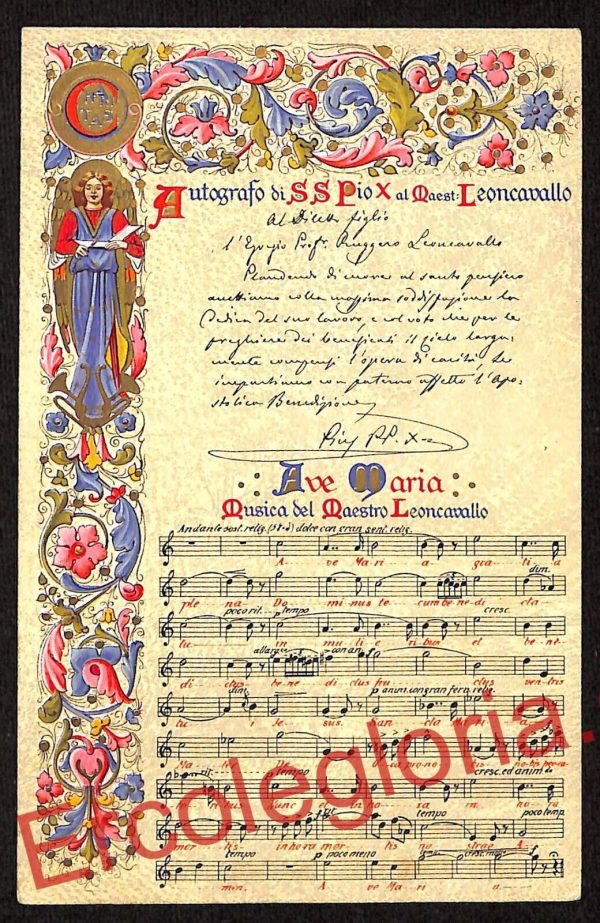 CARITAS
Autografo di SS Pio X al Maest: Leoncavallo
Al Diletto figlio
l'Egregio Profr. Ruggero Leoncavallo
Plaudendo di cuore al santo pensiero
accettiamo colla massima soddisfazione la
dedica del suo lavoro, e col voto che per le
preghiere dei beneficati il cielo larga-
mente compensi l'opera di carità, Le
impartiamo con paterno affetto l'Apo-
stolica Benedizione
Pius PP. X
Ave Maria
Musica del Maestro Leoncavallo
Andante sost. relig. dolce con gran sent. relig.
A ve Mari a gra ti a
dim.
ple na Do mi nus te cum be ne di cta
poco rit. tempo cresc.
tu in mu li e ri bus et bene-
allarg. con an. f
di ctus be ne di ctus fru ctus ventris
dim. p anim. con gran ferv. relig.
tu i Je sus. San cta Ma ri a
Ma te o ra pro no bis
rit. p tempo cresc. ed anim.
nunc et in ho ra in ho ra
poco temp.
mor tis in hora mor tis no strae A-
tempo p poco meno
men. A ve Ma ri a
Ercolegloria.